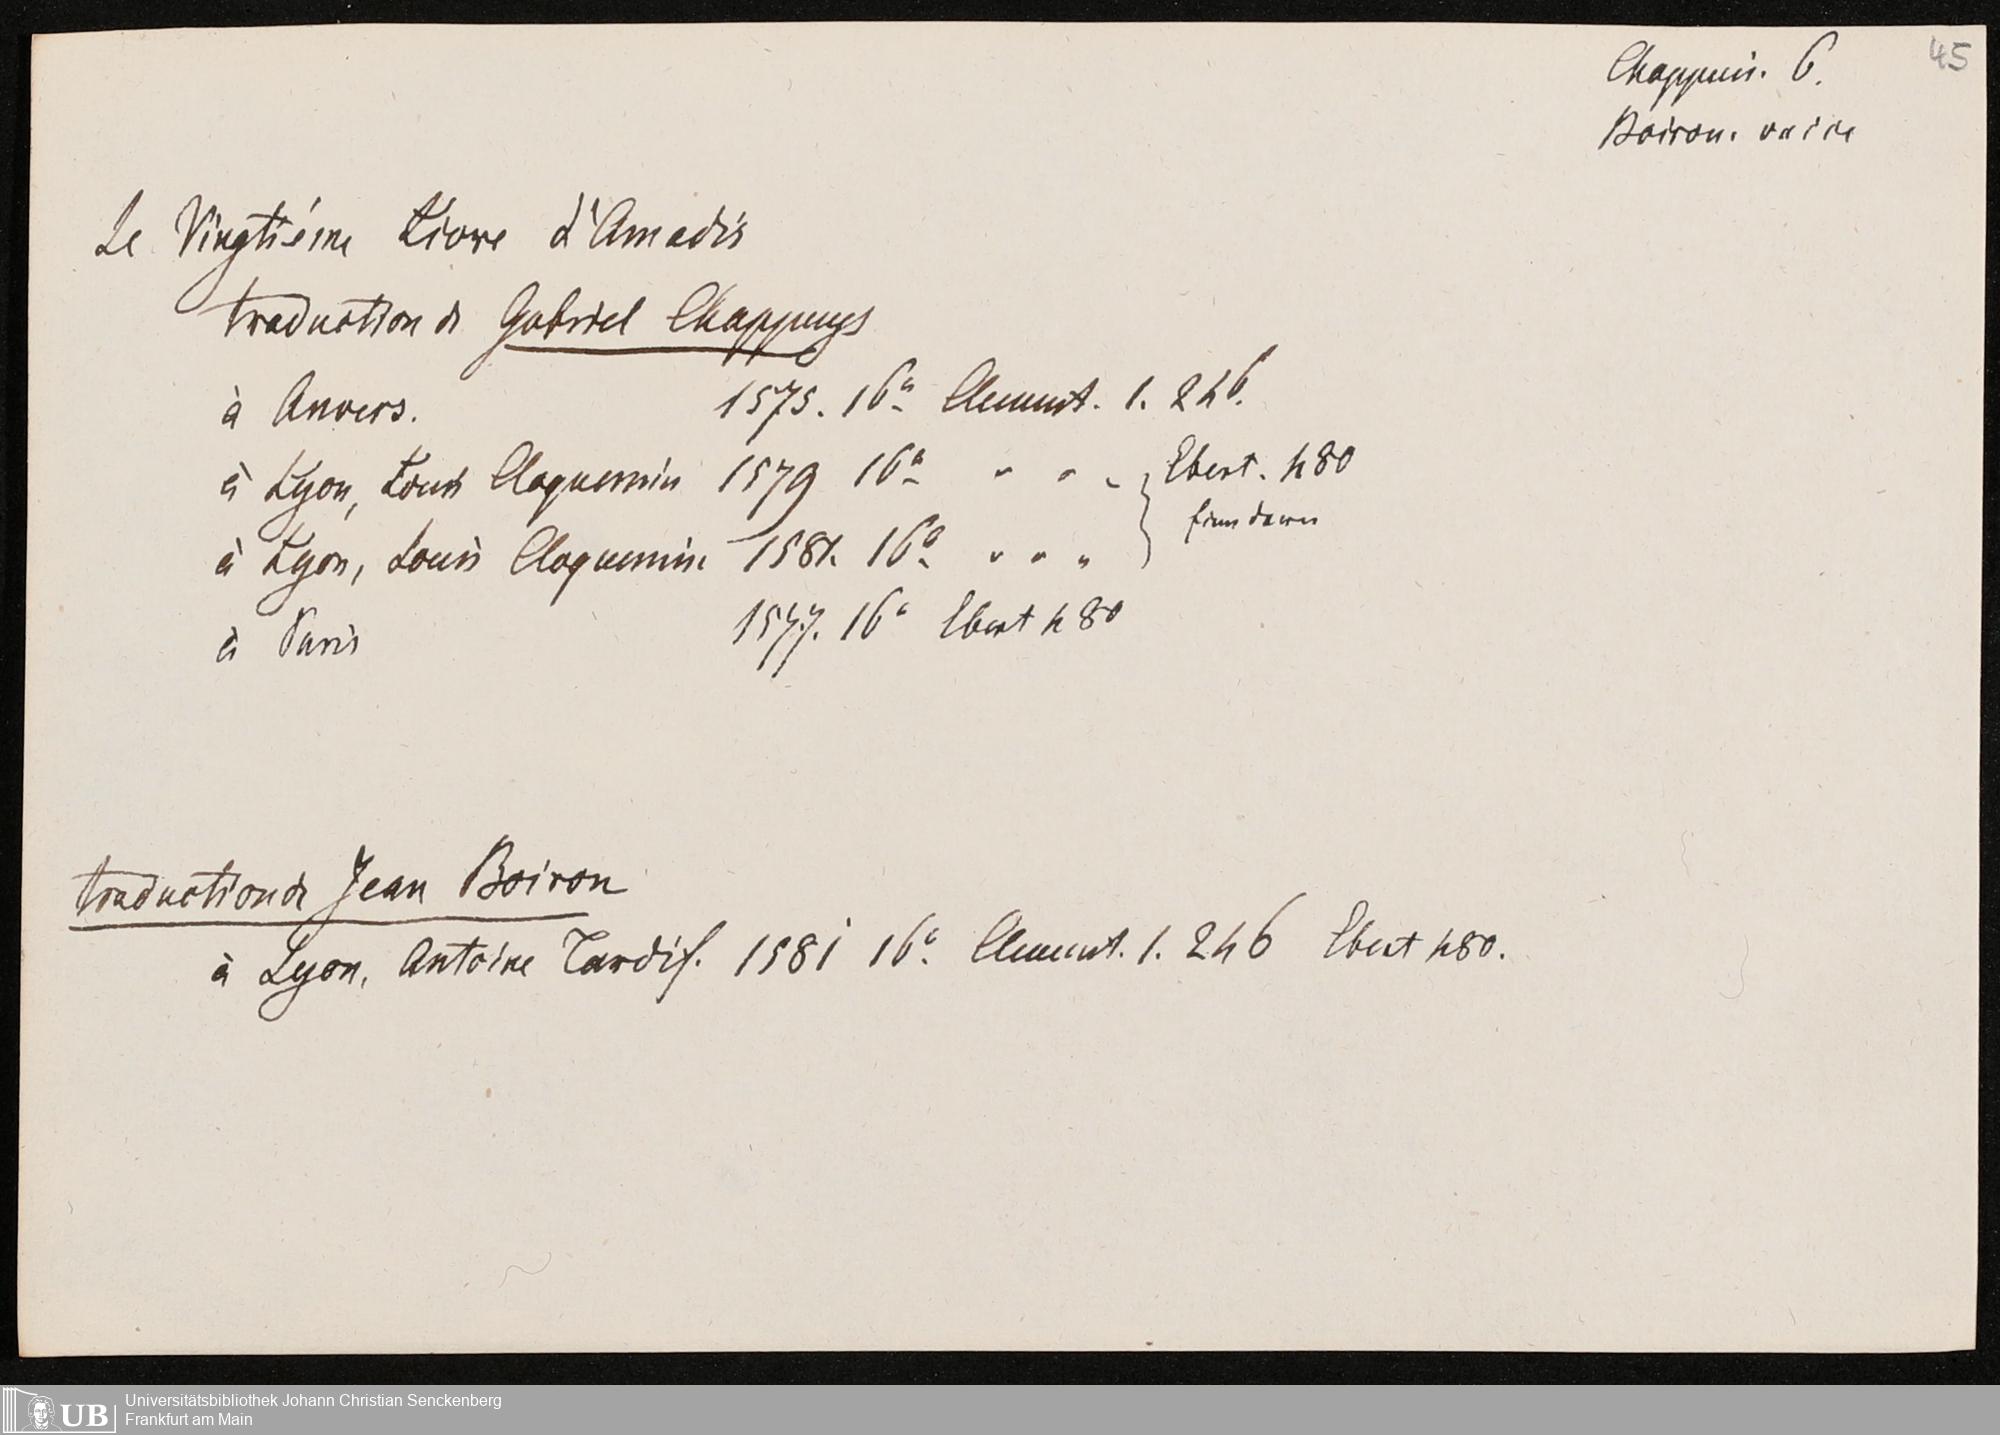 45
Chappuis. 6.
Boiron.
Le Vingtiéme Livre d'Amadis
traduction de Gabriel Chappuys
à Anvers. 1575. 16° Clement. 1. 246.
à Lyon, Louis Cloquemin 1579 16° " " " Ebert. 480
à Lyon, Louis Cloquemin 1581. 16° " " "
à Paris 1577. 16° Ebert 480
traduction de Jean Boiron
à Lyon, Antoine Tardif. 1581 16° Clement. 1. 246 Ebert 480.
UB Universitätsbibliothek Johann Christian Senckenberg
Frankfurt am Main